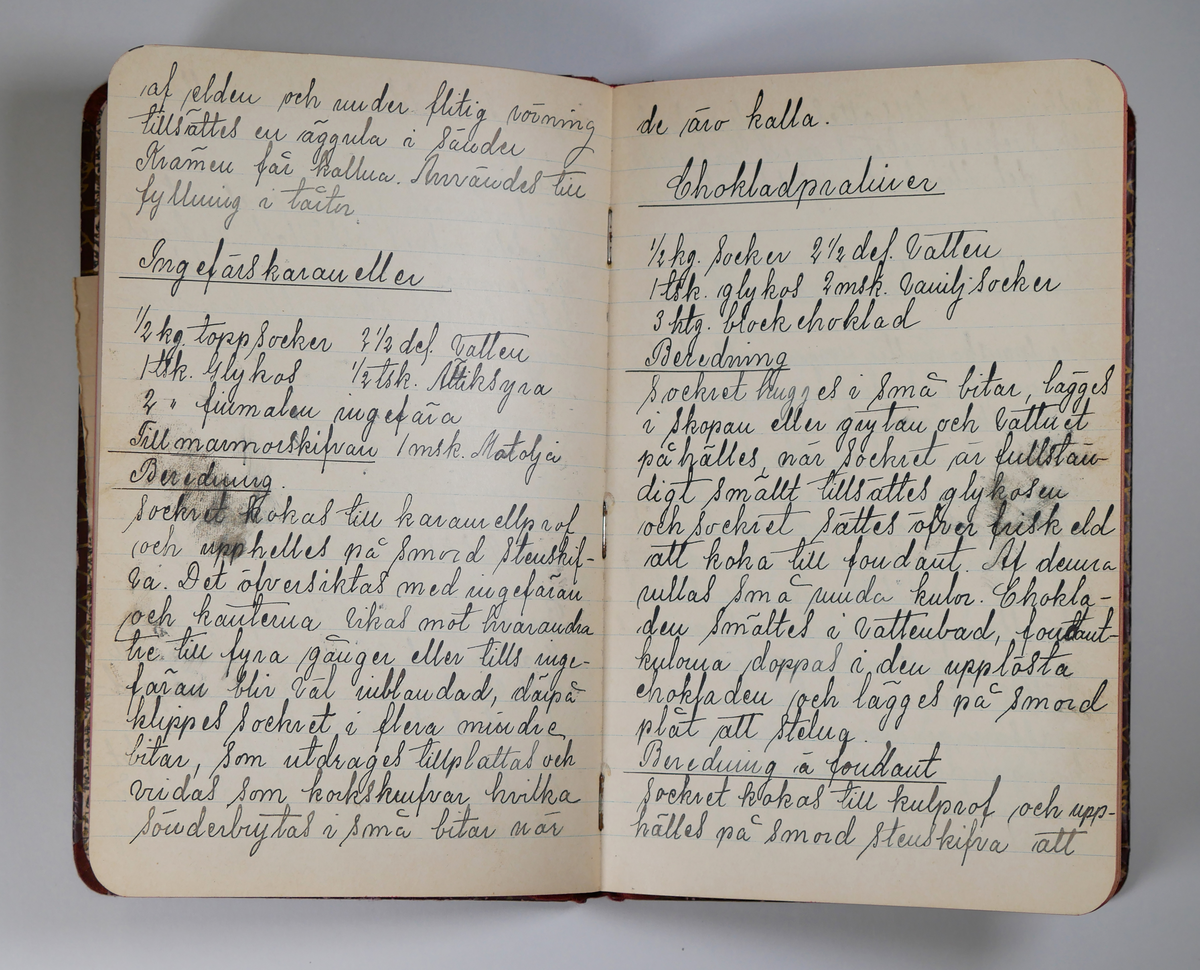 af elden och under flitig rörning
tillsättes en äggula i sänder
Krämen får kallna. Användes till
fyllning i tårtor.
Ingefärskarameller
1/2 kg. toppsocker 2 1/2 del. Vatten
1 tsk. Glykos 1/2 tsk. Ättiksyra
2 " finmalen ingefära
Till marmorskifvan 1 msk. Matolja
Beredning.
Sockret kokas till karamellprof
och upphelles på smord stenskif-
va. Det öfversiktas med ingefäran
och kanterna vikas mot hvarandra
tre till fyra gånger eller tills inge-
färan blir väl inblandad, därpå
klippes sockret i flera mindre
bitar, som utdrages tillplattas och
vridas som korkskrufvar hvilka
sönderbrytas i små bitar när
de äro kalla.
Chokladpraliner
1/2 kg. Socker 2 1/2 del. Vatten
1 tsk. glykos 2 msk. Vaniljsocker
3 htg. blockchoklad
Beredning
Sockret hugges i små bitar, lägges
i skopan eller grytan och Vattnet
påhälles, när sockret är fullstän-
digt smällt tillsättes glykosen
och sockret sättes öfver frisk eld
att koka till fondant. Af denna
rullas små runda kulor. Chokla-
den smältes i vattenbad, fondant-
kulorna doppas i den upplösta
chokladen och lägges på smord
plåt att stelna.
Beredning à fondant
Sockret kokas till kulprof och upp-
hälles på smord stenskifva att